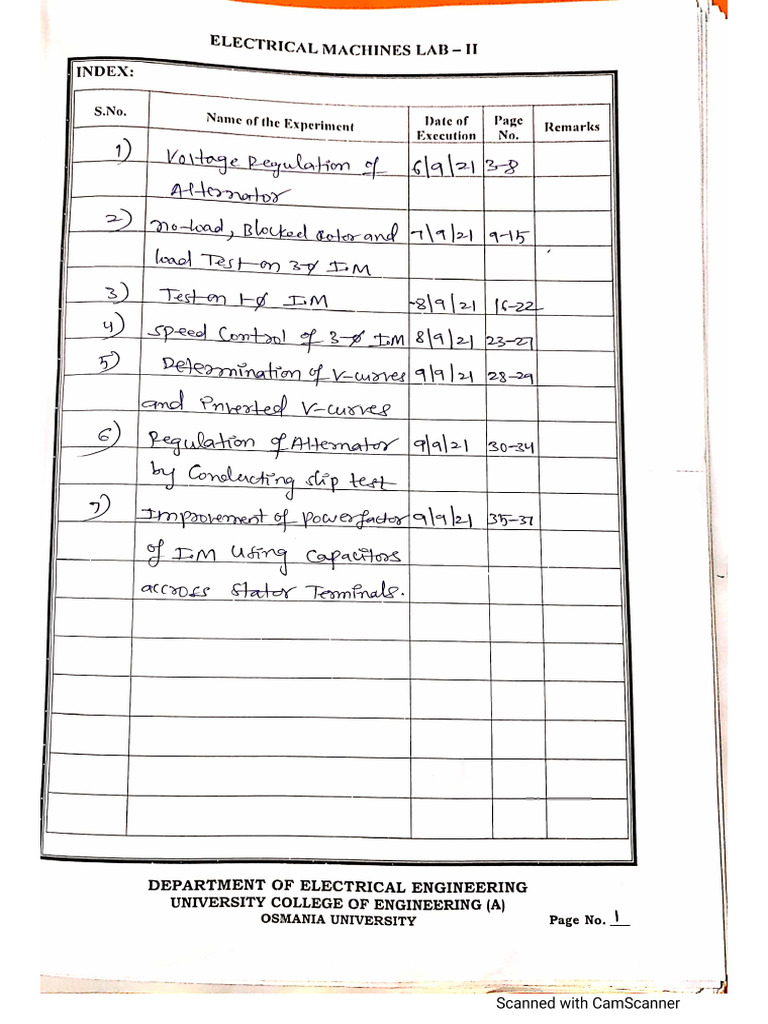 ELECTRICAL MACHINES LAB – II
INDEX:
S.No. Name of the Experiment Date of Execution Page No. Remarks
1) Voltage Regulation of 6/9/21 3-8
Alternator
2) no-load, Blocked rotor and 7/9/21 9-15
load Test on 3-ϕ I.M
3) Test on 1-ϕ I.M 8/9/21 16-22
4) Speed Control of 3-ϕ I.M 8/9/21 23-27
5) Determination of V-curves 9/9/21 28-29
and Inverted V-curves
6) Regulation of Alternator 9/9/21 30-34
by Conducting slip test
7) Improvement of powerfactor 9/9/21 35-37
of I.M Using Capacitors
accross Stator Terminals.
DEPARTMENT OF ELECTRICAL ENGINEERING
UNIVERSITY COLLEGE OF ENGINEERING (A)
OSMANIA UNIVERSITY Page No. 1
Scanned with CamScanner